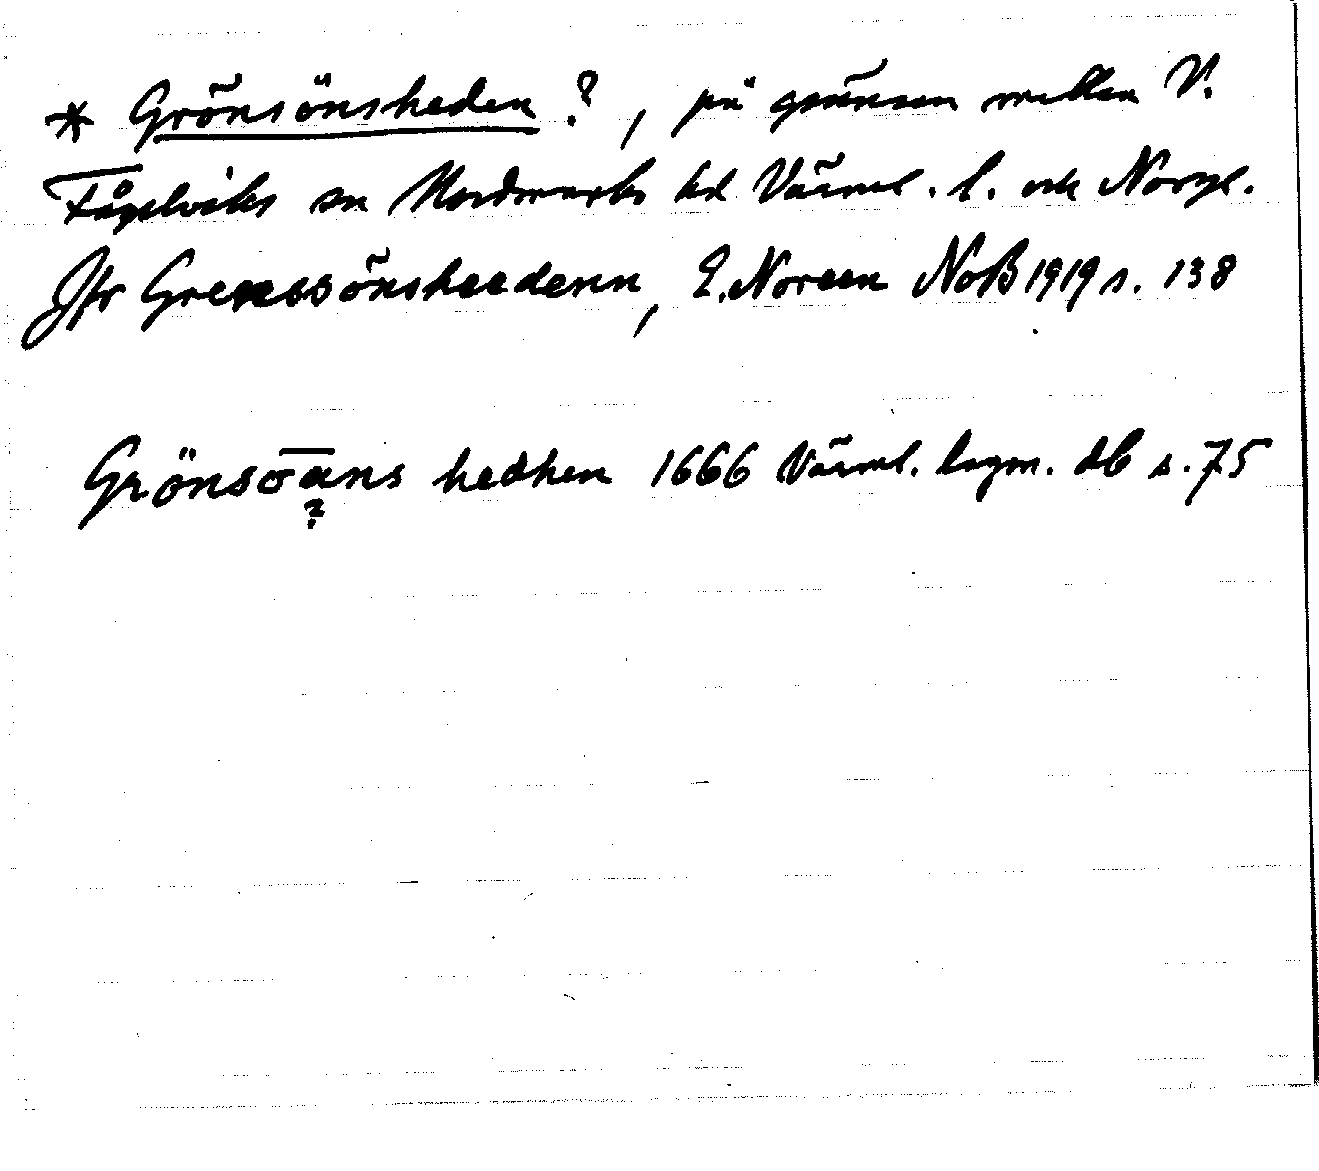 * Grönsönsheden ?, på gränsen mellan V.
Fågelviks sn Nordmarks hd Värml. l. och Norge.
Jfr Grenssönsheedenn, E. Noreen NoB 1919 s. 138
Grönsōans hedhen 1666 Värml. lagm. db s. 75
?